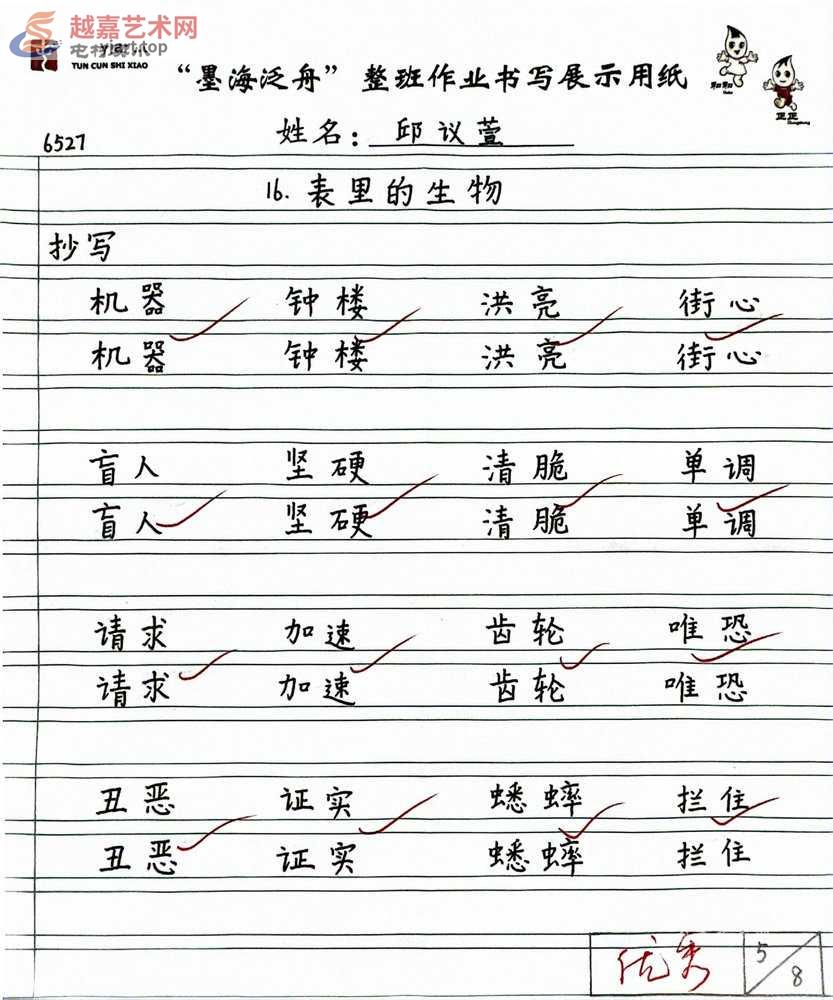 越嘉艺术网
yjart.top
TUN CUN SHI XIAO
“墨海泛舟”整班作业书写展示用纸
和和
正正
6527 姓名：邱议萱
16.表里的生物
抄写
机器 钟楼 洪亮 街心
机器 钟楼 洪亮 街心
盲人 坚硬 清脆 单调
盲人 坚硬 清脆 单调
请求 加速 齿轮 唯恐
请求 加速 齿轮 唯恐
丑恶 证实 蟋蟀 拦住
丑恶 证实 蟋蟀 拦住
优秀 5/8